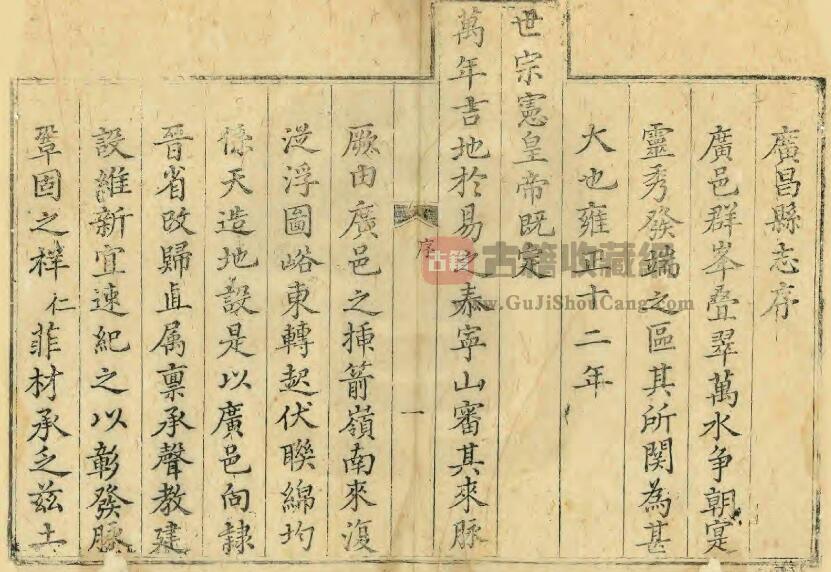 廣昌縣志序
廣邑群峯疊翠萬水争朝寔
靈秀發端之區其所関為甚
大也雍正十二年
世宗憲皇帝既定
萬年吉地於易之泰寧山審其来脉
序
一
厥由廣邑之挿箭嶺南來復
從浮圖峪東轉起伏聯綿均
係天造地設是以廣邑向隸
晉省改歸直属禀承聲教建
設維新宜速紀之以彰發脉
鞏固之祥仁菲材承乏兹土
古籍 古籍收藏網
www.GuJiShouCang.com